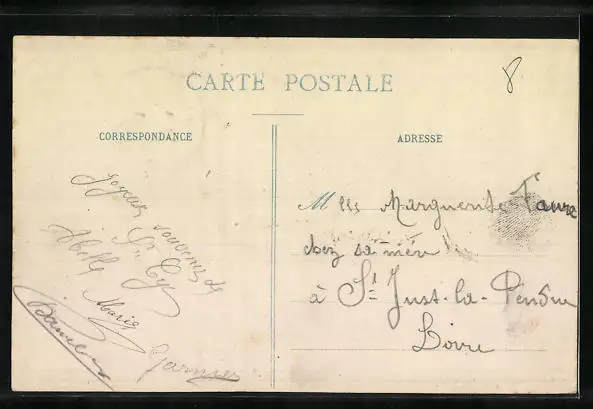 CARTE POSTALE
8
CORRESPONDANCE
ADRESSE
Joyeux souvenir de
St Cyr
Abelle
Marie
Garnier
Mlle Marguerite Faure
chez sa mère
à St Just-la-Pendue
Loire